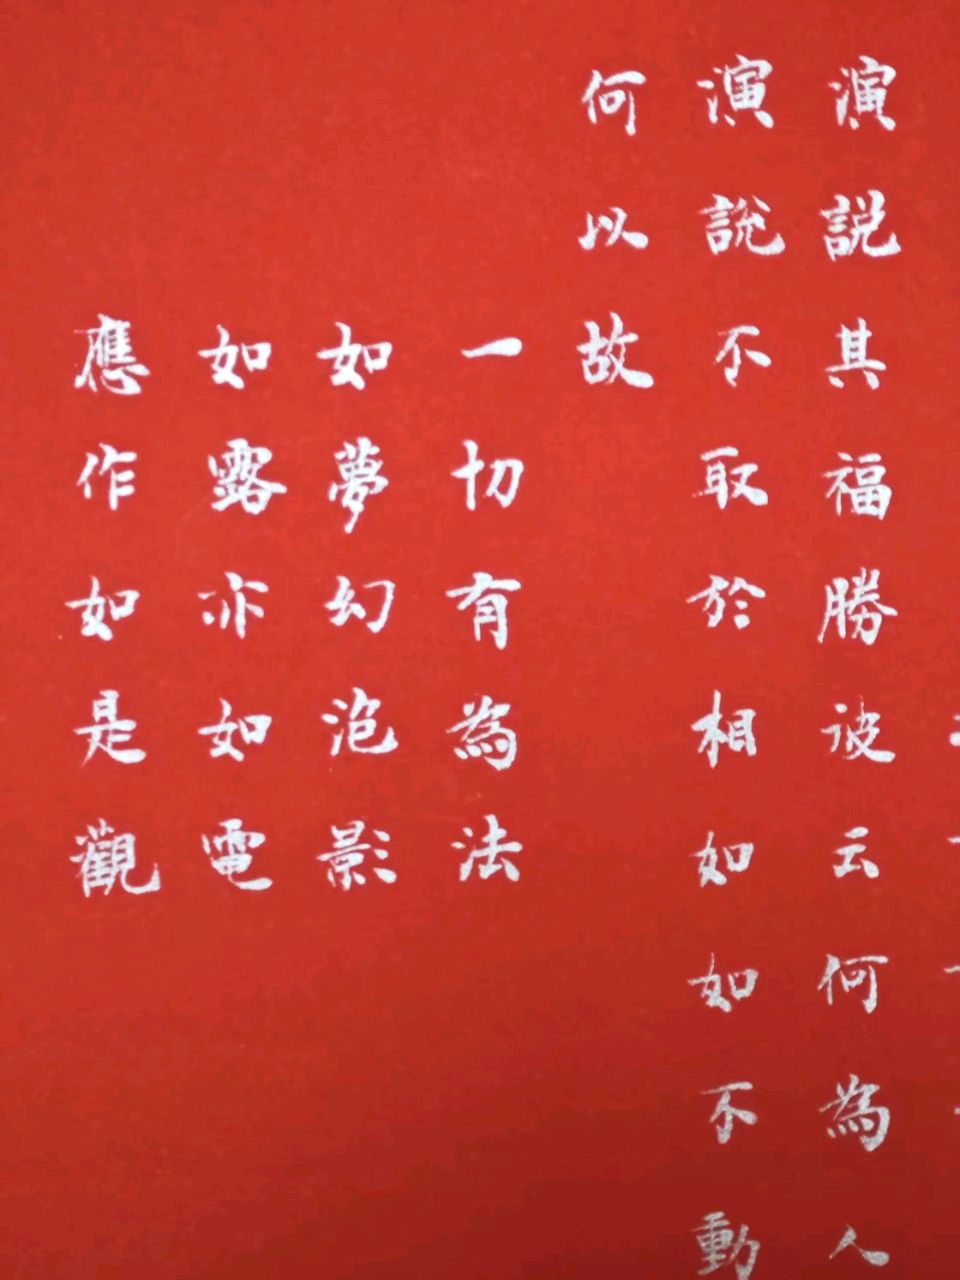 演説其福勝彼云何為人
演說不取於相如如不動
何以故
一切有為法
如夢幻泡影
如露亦如電
應作如是觀